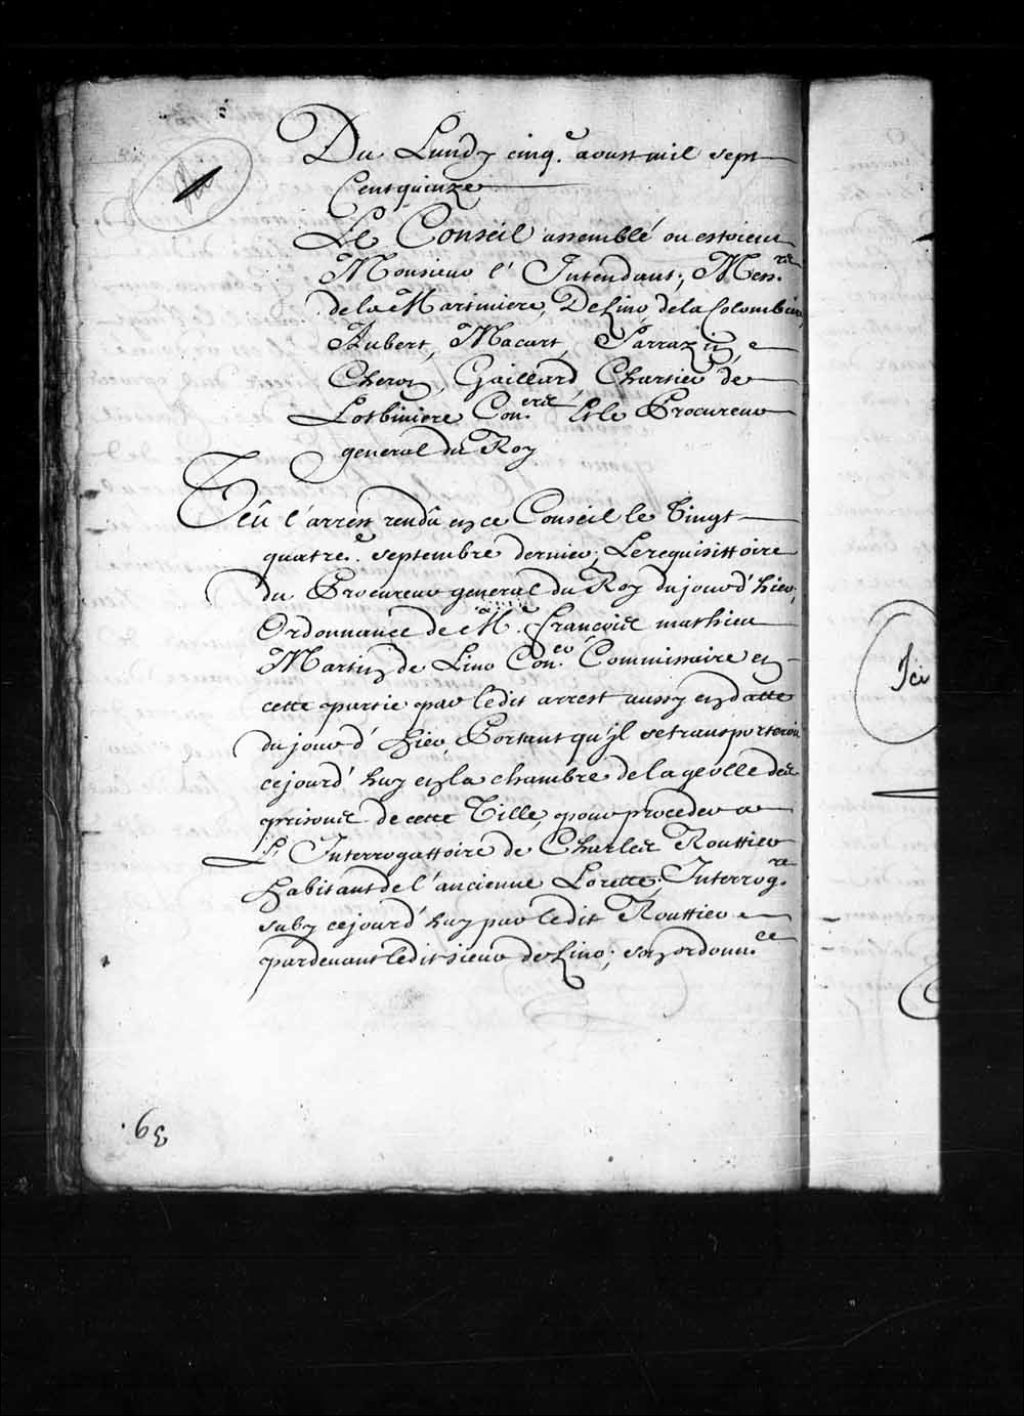 Du Lundy cinq.e aoust mil sept
Cent quinze
Le Conseil assemblé ou estoient
Monsieur l'Intendant; Mess.rs
de la Martiniere, De Lino, de la Colombiere,
Aubert, Macart, Sarrazin,
Cheron, Gaillard, Chartier de
Lotbiniere Con.ers Et le Procureur
general du Roy
Veû l'arrest rendû en ce Conseil le Vingt
quatre.e septembre dernier; Le requisittoire
du Procureur general du Roy du jour d'hier,
Ordonnance de M.e François mathieu
Martin de Lino Con.er Commissaire en
cette partie par ledit arrest aussy en datte
du jour d'hier, Portant qu'jl se transporteroit
cejourd'huy en la chambre de la geolle des
prisons de cette Ville, pour proceder a
L'Interrogattoire de Charles Routtier
habitant de l'ancienne Lorette; Interrog.re
suby cejourd'huy par ledit Routtier
pardevant ledit sieur de Lino; son ordonn.ce
Ici